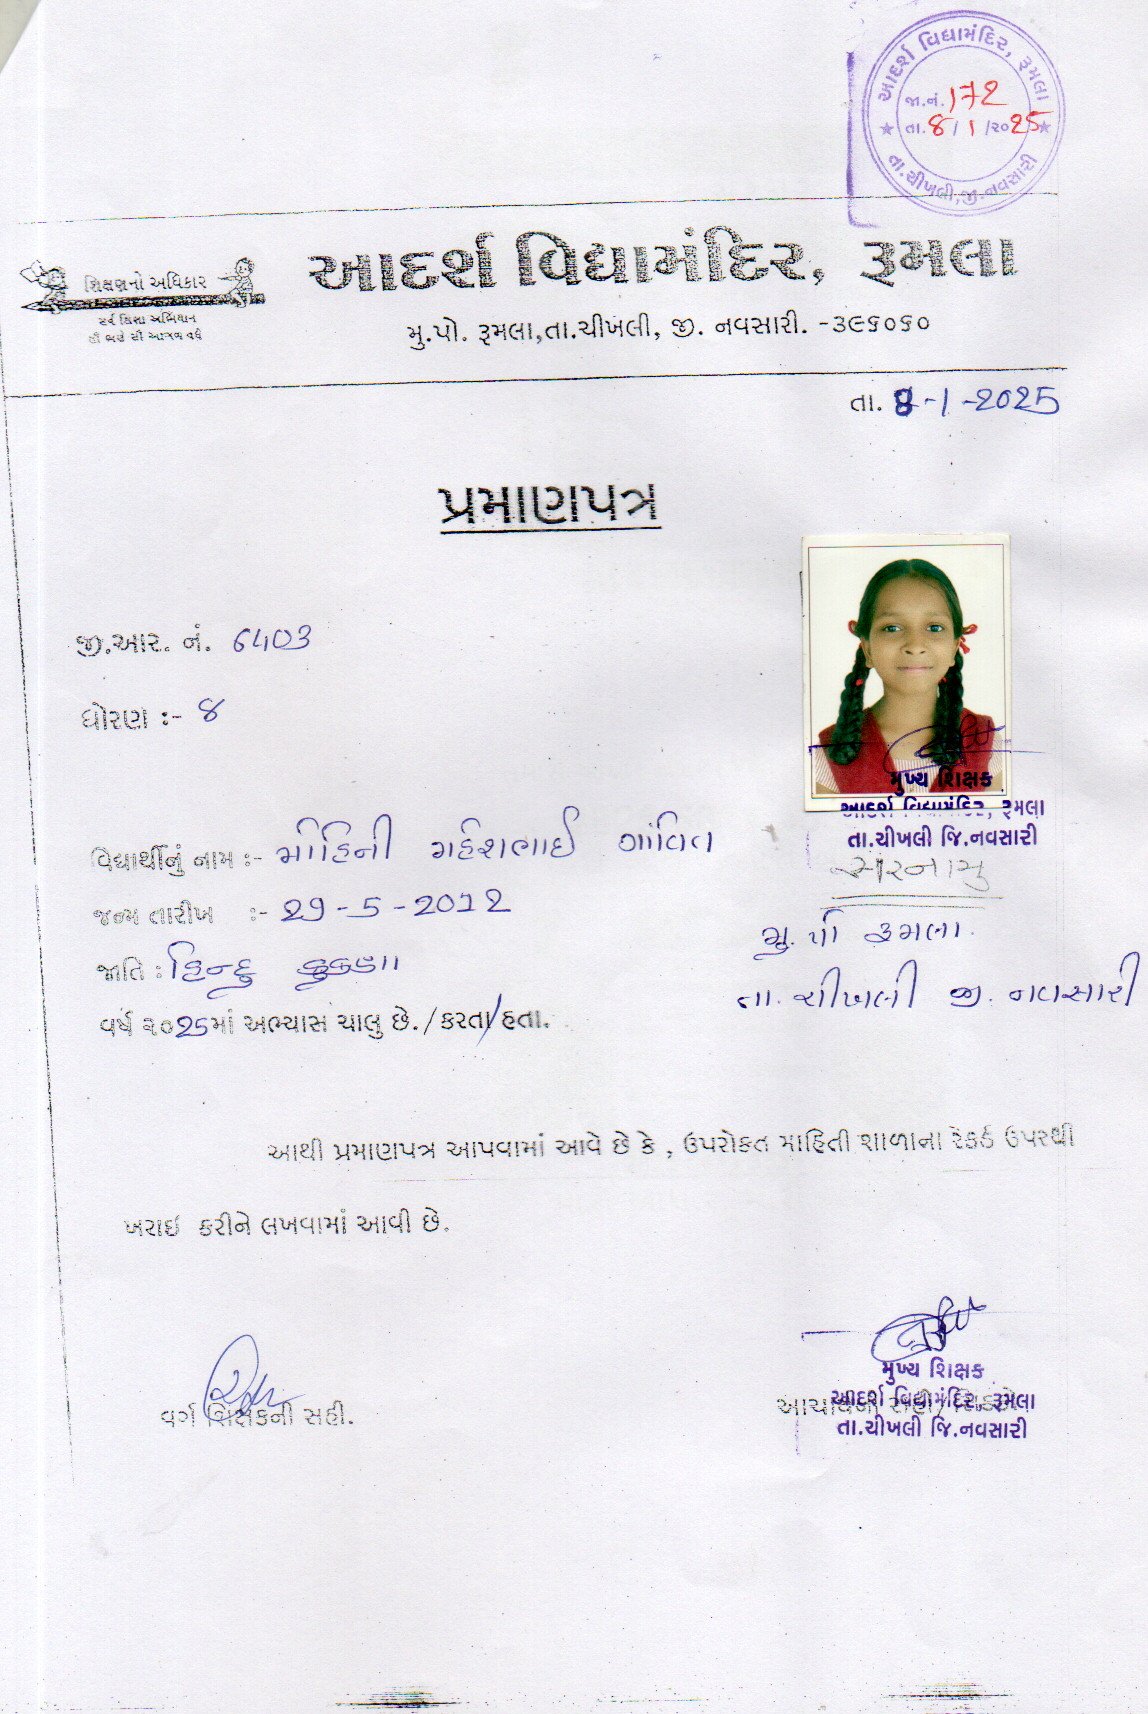 આદર્શ વિદ્યામંદિર, રૂમલા
જા.નં. 172
તા. 8/1/૨૦25
તા.ચીખલી,જી.નવસારી
શિક્ષણનો અધિકાર
સર્વ શિક્ષા અભિયાન
આદર્શ વિદ્યામંદિર, રૂમલા
મુ.પો. રૂમલા,તા.ચીખલી, જી. નવસારી. -૩૯૬૦૬૦
તા. 8-1-2025
પ્રમાણપત્ર
જી.આર. નં. 6403
ધોરણ :- ૪
મુખ્ય શિક્ષક
આદર્શ વિદ્યામંદિર, રૂમલા
તા.ચીખલી જિ.નવસારી
વિદ્યાર્થીનું નામ :- મોહિની મહેશભાઈ ગાંવિત
સરનામુ
જન્મ તારીખ :- 29-5-2012
મુ. પો રૂમલા.
જાતિ : હિન્દુ કુકણા
તા. ચીખલી જી. નવસારી
વર્ષ ૨૦25માં અભ્યાસ ચાલુ છે./કરતા/હતા.
આથી પ્રમાણપત્ર આપવામાં આવે છે કે , ઉપરોકત માહિતી શાળાના રેકર્ડ ઉપરથી
ખરાઇ કરીને લખવામાં આવી છે.
વર્ગ શિક્ષકની સહી.
મુખ્ય શિક્ષક
આદર્શ વિદ્યામંદિર, રૂમલા
તા.ચીખલી જિ.નવસારી